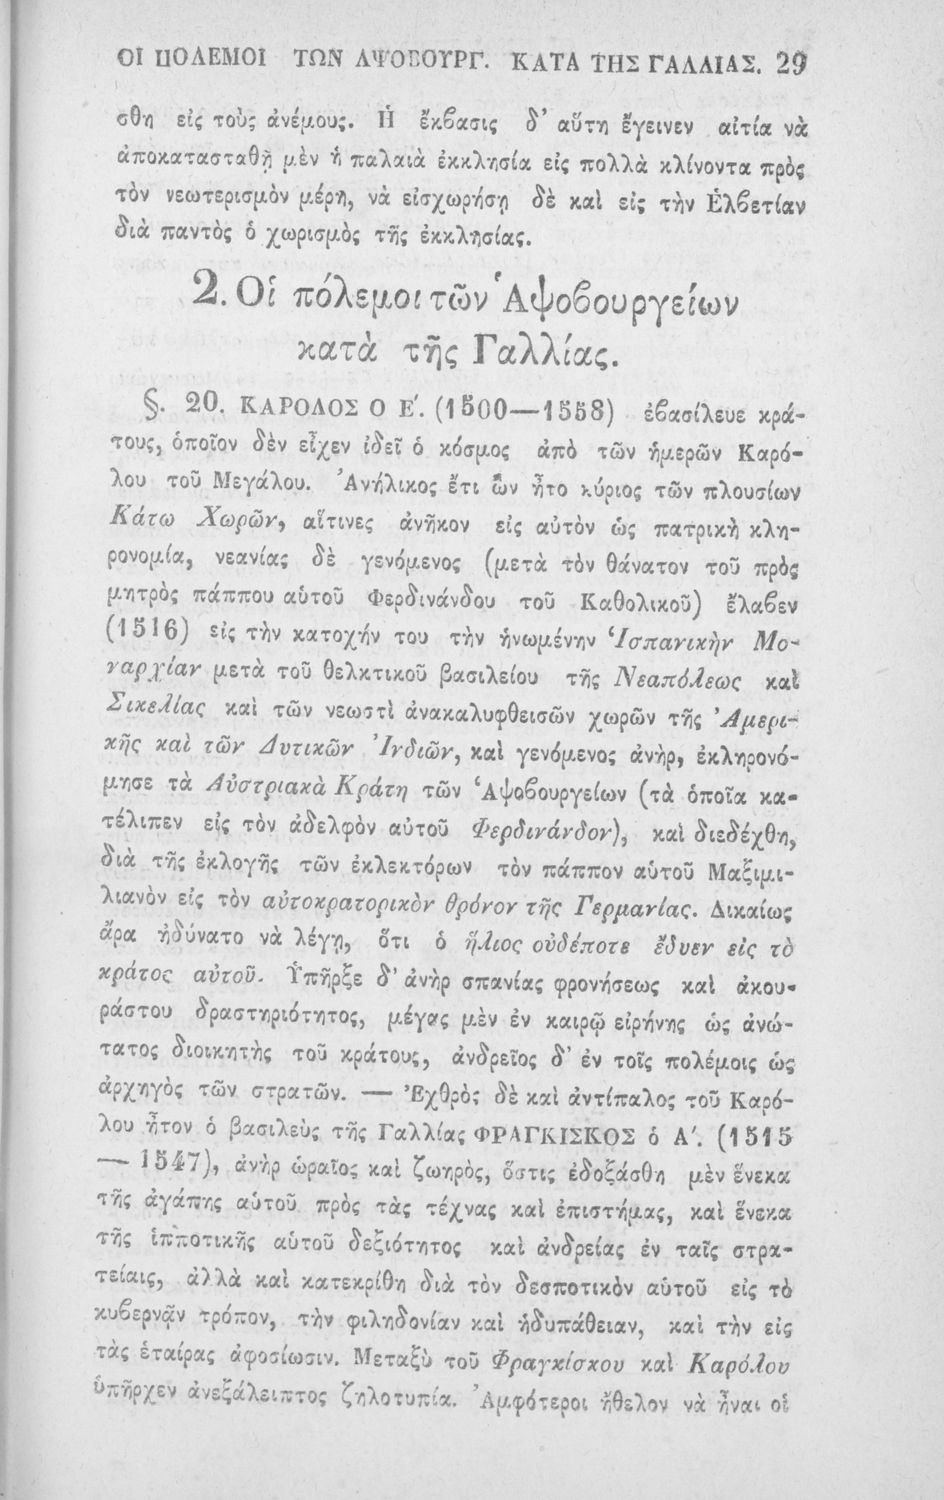 ΟΙ ΠΟΛΕΜΟΙ ΤΩΝ ΑΨΟΒΟΥΡΓ. ΚΑΤΑ ΤΗΣ ΓΑΛΛΙΑΣ. 29
σθη εἰς τοὺς ἀνέμους. Ἡ ἔκβασις δ' αὕτη ἔγεινεν αἰτία νὰ
ἀποκατασταθῇ μὲν ἡ παλαιὰ ἐκκλησία εἰς πολλὰ κλίνοντα πρὸς
τὸν νεωτερισμὸν μέρη, νὰ εἰσχωρήσῃ δὲ καὶ εἰς τὴν Ἑλβετίαν
διὰ παντὸς ὁ χωρισμὸς τῆς ἐκκλησίας.
2. Οἱ πόλεμοι τῶν Ἁψοβουργείων
κατὰ τῆς Γαλλίας.
§. 20. ΚΑΡΟΛΟΣ Ο Ε΄. (1500—1558) ἐβασίλευε κρά-
τους, ὁποῖον δὲν εἶχεν ἰδεῖ ὁ κόσμος ἀπὸ τῶν ἡμερῶν Καρό-
λου τοῦ Μεγάλου. Ἀνήλικος ἔτι ὢν ἦτο κύριος τῶν πλουσίων
Κάτω Χωρῶν, αἵτινες ἀνῆκον εἰς αὐτὸν ὡς πατρικὴ κλη-
ρονομία, νεανίας δὲ γενόμενος (μετὰ τὸν θάνατον τοῦ πρὸς
μητρὸς πάππου αὑτοῦ Φερδινάνδου τοῦ Καθολικοῦ) ἔλαβεν
(1516) εἰς τὴν κατοχήν του τὴν ἡνωμένην Ἱσπανικὴν Μο-
ναρχίαν μετὰ τοῦ θελκτικοῦ βασιλείου τῆς Νεαπόλεως καὶ
Σικελίας καὶ τῶν νεωστὶ ἀνακαλυφθεισῶν χωρῶν τῆς Ἀμερι-
κῆς καὶ τῶν Δυτικῶν Ἰνδιῶν, καὶ γενόμενος ἀνὴρ, ἐκληρονό-
μησε τὰ Αὐστριακὰ Κράτη τῶν Ἁψοβουργείων (τὰ ὁποῖα κα-
τέλιπεν εἰς τὸν ἀδελφὸν αὐτοῦ Φερδινάνδον), καὶ διεδέχθη,
διὰ τῆς ἐκλογῆς τῶν ἐκλεκτόρων τὸν πάππον αὑτοῦ Μαξιμι-
λιανὸν εἰς τὸν αὐτοκρατορικὸν θρόνον τῆς Γερμανίας. Δικαίως
ἄρα ἠδύνατο νὰ λέγῃ, ὅτι ὁ ἥλιος οὐδέποτε ἔδυεν εἰς τὸ
κράτος αὐτοῦ. Ὑπῆρξε δ' ἀνὴρ σπανίας φρονήσεως καὶ ἀκου-
ράστου δραστηριότητος, μέγας μὲν ἐν καιρῷ εἰρήνης ὡς ἀνώ-
τατος διοικητὴς τοῦ κράτους, ἀνδρεῖος δ' ἐν τοῖς πολέμοις ὡς
ἀρχηγὸς τῶν στρατῶν. — Ἐχθρὸς δὲ καὶ ἀντίπαλος τοῦ Καρό-
λου ἦτον ὁ βασιλεὺς τῆς Γαλλίας ΦΡΑΓΚΙΣΚΟΣ ὁ Α΄. (1515
— 1547), ἀνὴρ ὡραῖος καὶ ζωηρὸς, ὅστις ἐδοξάσθη μὲν ἕνεκα
τῆς ἀγάπης αὑτοῦ πρὸς τὰς τέχνας καὶ ἐπιστήμας, καὶ ἕνεκα
τῆς ἱπποτικῆς αὑτοῦ δεξιότητος καὶ ἀνδρείας ἐν ταῖς στρα-
τείαις, ἀλλὰ καὶ κατεκρίθη διὰ τὸν δεσποτικὸν αὑτοῦ εἰς τὸ
κυβερνᾷν τρόπον, τὴν φιληδονίαν καὶ ἡδυπάθειαν, καὶ τὴν εἰς
τὰς ἑταίρας ἀφοσίωσιν. Μεταξὺ τοῦ Φραγκίσκου καὶ Καρόλου
ὑπῆρχεν ἀνεξάλειπτος ζηλοτυπία. Ἀμφότεροι ἤθελον νὰ ἦναι οἱ